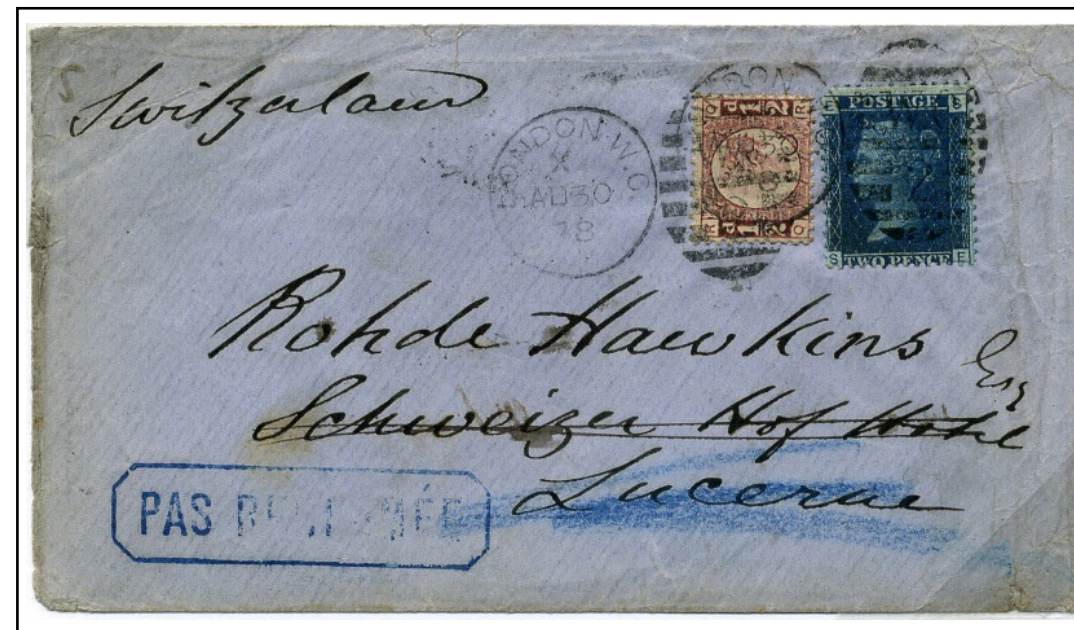 Switzerland
LONDON·W.C
X
AU30
78
POSTAGE
TWO PENCE
Rohde Hawkins
Esq
Schweizer Hof Hotel
Lucerne
PAS